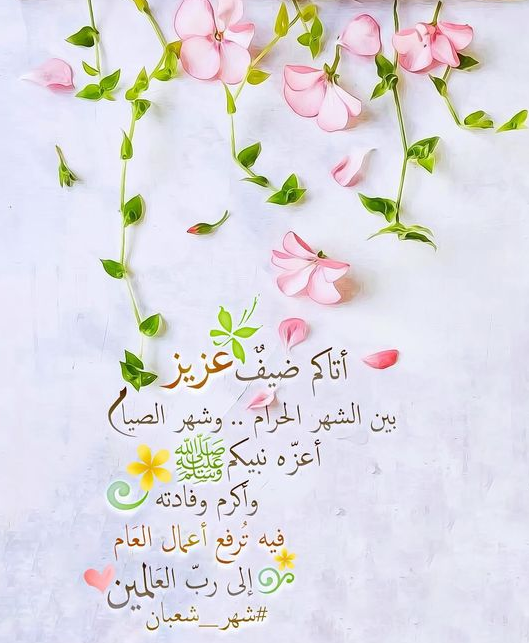 أتاكم ضيفٌ عزيز
بين الشهر الحرام .. وشهر الصيام
أعزّه نبيكم ﷺ
وأكرم وفادته
فيه تُرفع أعمال العَام
إلى ربّ العَالمين
#شهر__شعبان